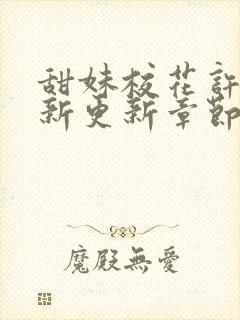 甜妹校花許
新更新章節
魔殿無愛